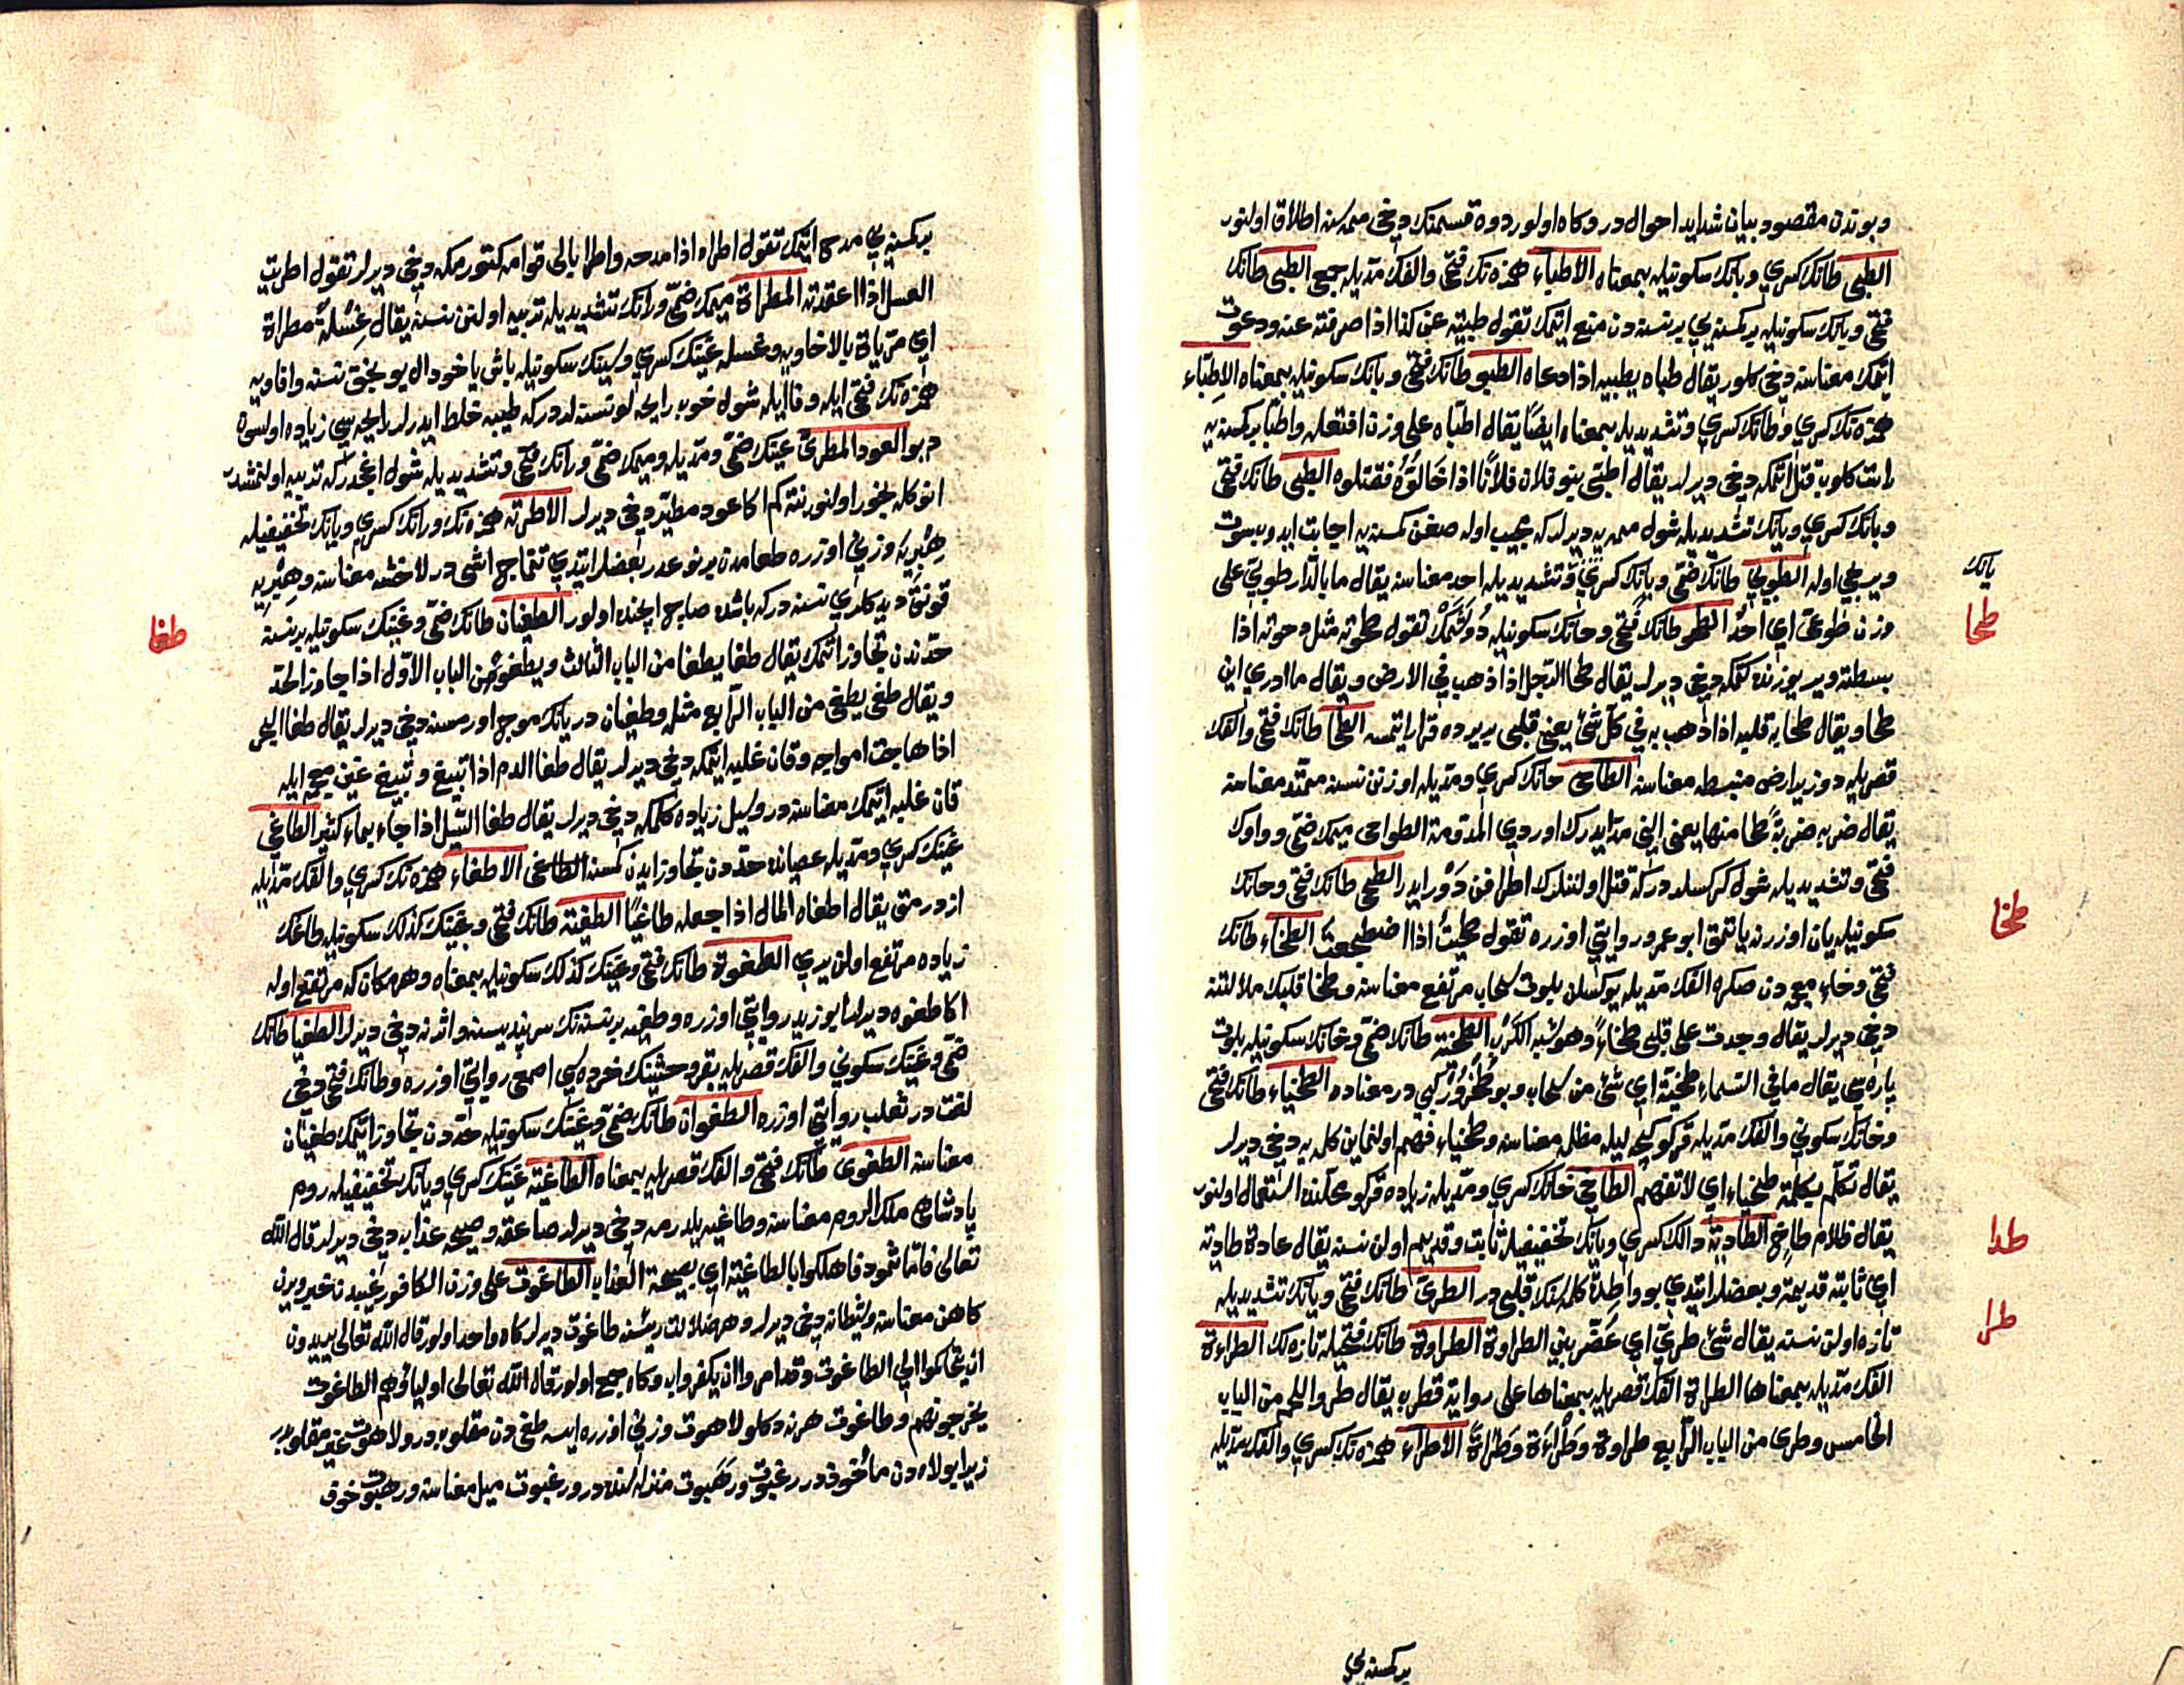 وبوندن مقصود بيان شدايد احوالدر وكاه اولور دوه قسمنك دخى ممه سنه اطلاق اولنور
الطبى طانك كسري وبانك سكونيله بمعناه الأطباء همزه نك فتحى والفك مديله جمع الطبى طانك
فتحى وبانك سكونيله بر كمسنه يى بر نسنه دن منع ايتمك تقول طبيته عن كذا اذا صرفته عنه ودعوت
ايتمك معناسنه دخى كلور يقال طباه يطبيه اذا دعاه الطبو طانك فتحى وبانك سكونيله بمعناه الاطباء
همزه نك كسري وطانك كسري وتشديديله بمعناه ايضا يقال اطباه على وزن افتعله واطبا بر كمسنه يه
دوست كلوب قتل اتمكه دخى ديرلر يقال اطبى بنو فلان فلانا اذا خالوه فقتلوه الطبى طانك فتحى
وبانك كسري ويانك تشديديله شول ممه يه ديرلر كه مجيب اوله صغن كمسنه يه اجابت ايدوب سوت
ويريجى اوله الطوبى طانك ضمى ويانك كسري وتشديديله احد معناسنه يقال ما بالدار طوبى على
وزن طوعى اي احد الطحو طانك فتحى وحانك سكونيله دوشمك تقول طحوته مثل دحوته اذا
بسطته وير يوزنده كتمكه دخى ديرلر يقال طحا الرجل اذا ذهب في الارض ويقال ما ادري اين
طحا ويقال طحا به قلبه اذا ذهب به في كل شئ يعنى قلبى بر يرده قرار ايتمسه الطحا طانك فتحى والفك
قصريله دوز ير ارض منبسط معناسنه الطاحى حانك كسري ومديله اوزنن نسنه ممتد معناسنه
يقال ضربه ضربة طحا منها يعنى الينى مد ايدرك اوردي المدومة الطواحى ميمك ضمى وواوك
فتحى وتشديديله شول كركسلردركه قتل اولننلرك اطرافن دور ايدر الطحى طانك فتحى وحانك
سكونيله يان اوزرينه ياتمق ابو عمرو روايتى اوزره تقول طحيت اذا اضطجعت الطخاء طانك
فتحى وخاء معجمه دن صكره الفك مديله يوكسلن بلوت سحاب مرتفع معناسنه وطخا قلبك ملالتنه
دخى ديرلر يقال وجدت على قلبى طخاء وهو شبه الكرب الطخية طانك ضمى وخانك سكونيله بلوت
پاره سى يقال ما في السماء طخية اي شئ من سحاب وبو طخرور كبى در معناده الطخياء طانك فتحى
وخانك سكونى والفك مديله قركو كيجه ليله مظلمه معناسنه وطخياء فهم اولنماين كلمه يه دخى ديرلر
يقال تكلم بكلمة طخياء اي لا تفهم الطاخى خانك كسري ومديله زياده قركو محلنده استعمال اولنور
يقال ظلام طاخ الطادية دالك كسري ويانك تخفيفيله ثابت وقديم اولن نسنه يقال عادة طادية
اي ثابتة قديمة وبعضلر ايتدي بو واطدة كلمه سنك قلبى در الطرى طانك فتحى ويانك تشديديله
تازه اولن نسنه يقال شئ طري اي غض بين الطراوة الطراوة طانك فتحيله تازه لك الطراءة
الفك مديله بمعناها الطراة الفك قصريله بمعناها على رواية قطرب يقال طرو اللحم من الباب
الخامس وطرى من الباب الرابع طراوة وطراءة وطراة الاطراء همزه نك كسري والفك مديله
بر كمسنه يى
يانك
طحا
طخا
طدا
طرا
بر كمسنه يى مدح ايتمك تقول اطراه اذا مدحه واطرا بالى قوامه كتورمكه دخى ديرلر تقول اطريت
العسل اذا اعقدته المطراة ميمك ضمى ورانك تشديديله تربيه اولنن نسنه يقال غسلة مطراة
اي مرباة بالافاويه وغسله غينك كسري وسينك سكونيله باشى ياخود ال يونجق نسنه وافاويه
همزه نك فتحى ايله وفا ايله شول خوب رايحه لو نسنه لردركه طيبه خلط ايدرلر رايحه سى زياده اولسون
ديو العود المطرى عينك ضمى ومديله وميمك ضمى ورانك فتحى وتشديديله شول اغجدركه تربيه اولنمشدر
انوكله بخور اولنور نته كم اكا عود مطير دخى ديرلر الاطرية همزه نك ورانك كسري ويانك تخفيفيله
هبرية وزنى اوزره طعامدن بر نوعدر بعضلر ايتدي تتماج اشى در لاخشه معناسنه وهبريه
قونق ديدكلري نسنه دركه باشده صاچ ايچنده اولور الطغيان طانك ضمى وغينك سكونيله بر نسنه
حدندن تجاوز اتمك يقال طغا يطغا من الباب الثالث ويطغو من الباب الاول اذا جاوز الحد
ويقال طغى يطغى من الباب الرابع مثله وطغيان دريانك موج اورمسنه دخى ديرلر يقال طغا البحر
اذا هاجت امواجه وقان غلبه ايتمكه دخى ديرلر يقال طغا الدم اذا تبيغ وتبيغ غين معجمه ايله
قان غلبه اتمك معناسنه در وسيل زياده كلمكه دخى ديرلر يقال طغا السيل اذا جاء بماء كثير الطاغى
غينك كسري ومديله عصيانده حددن تجاوز ايدن كمسنه الطاغى الاطغاء همزه نك كسري والفك مديله
ازدرمق يقال اطغاه المال اذا جعله طاغيا الطغية طانك فتحى وغينك كذلك سكونيله طاغك
زياده مرتفع اولن يري الطغوة طانك فتحى وغينك كذلك سكونيله بمعناه وهر مكان كه مرتفع اوله
اكا طغوه ديرلر ابو زيد روايتى اوزره وطغيه بر نسنه نك سر پنديسنه واثرنه دخى ديرلر الطغيا طانك
ضمى وغينك سكونى والفك قصريله بقر وحشينك خرده سى اصمعى روايتى اوزره وطانك فتحى دخى
لغت در ثعلب روايتى اوزره الطغوان طانك ضمى وغينك سكونيله حددن تجاوز اتمك طغيان
معناسنه الطغوى طانك فتحى والفك قصريله بمعناه الطاغية غينك كسري ويانك تخفيفيله روم
پادشاهى ملك الروم معناسنه وطاغيه يلدرمه دخى ديرلر صاعقه وصيحه عذابه دخى ديرلر قال الله
تعالى فاما ثمود فاهلكوا بالطاغية اي بصيحة العذاب الطاغوت على وزن الكافور غيبدن خبر ويرن
كاهن معناسنه وشيطانه دخى ديرلر وهر ضلالت رئيسنه طاغوت ديرلر كاه واحد اولور قال الله تعالى يريدون
ان يتحاكموا الى الطاغوت وقد امروا ان يكفروا به وكاه جمع اولور قال الله تعالى اولياؤهم الطاغوت
يخرجونهم وطاغوت هر نه دكلو لاهوت وزنى اوزره ايسه طغى دن مقلوبدر ولاهوت غير مقلوبدر
زيرا بو لاه دن مأخوذدر رغبوت ورهبوت منزله سنده در ورغبوت ميل معناسنه ورهبوت خوف
طغا